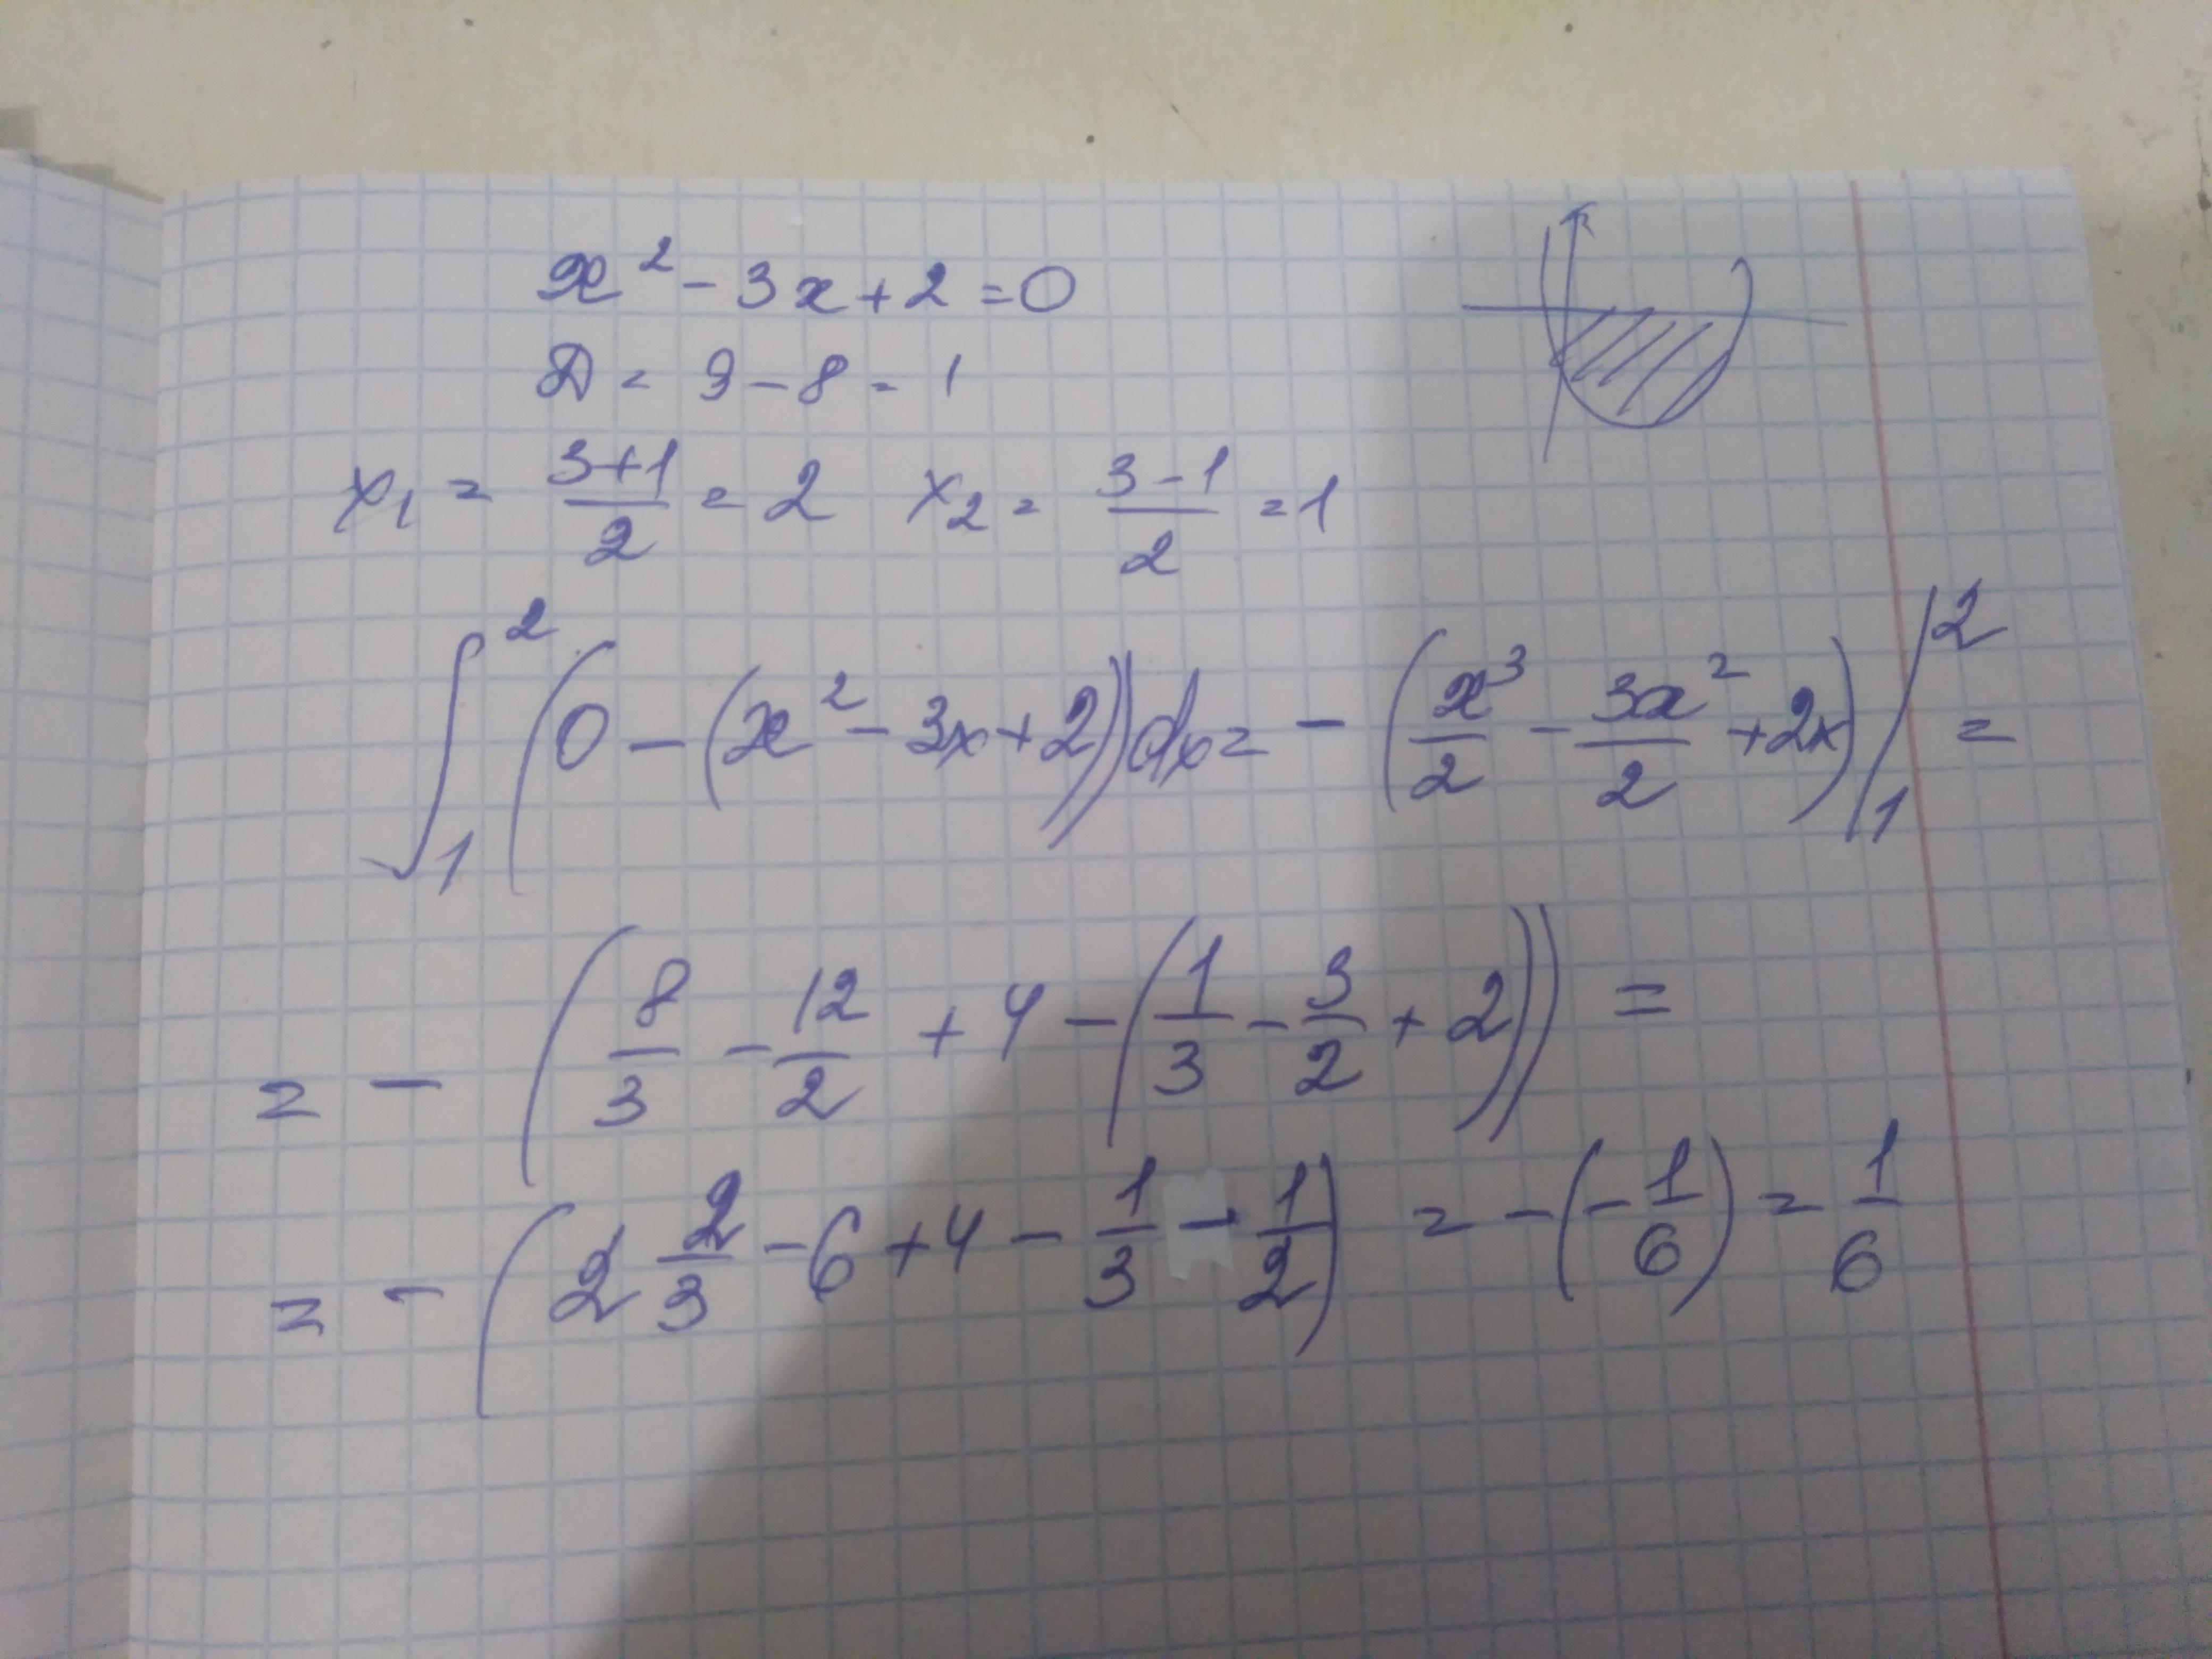 x² - 3x + 2 = 0
D = 9 - 8 = 1
x₁ = (3+1)/2 = 2 x₂ = (3-1)/2 = 1
∫₁² (0 - (x² - 3x + 2)) dx = - (x³/2 - 3x²/2 + 2x) |₁² =
= - (8/3 - 12/2 + 4 - (1/3 - 3/2 + 2)) =
= - (2 2/3 - 6 + 4 - 1/3 - 1/2) = - (-1/6) = 1/6